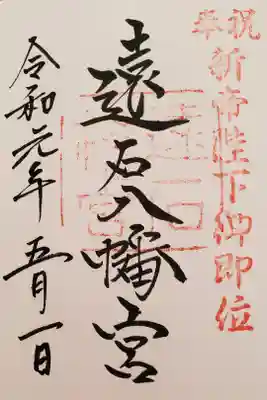 奉祝
新帝陛下御即位
遠石八幡宮
令和元年
五月一日